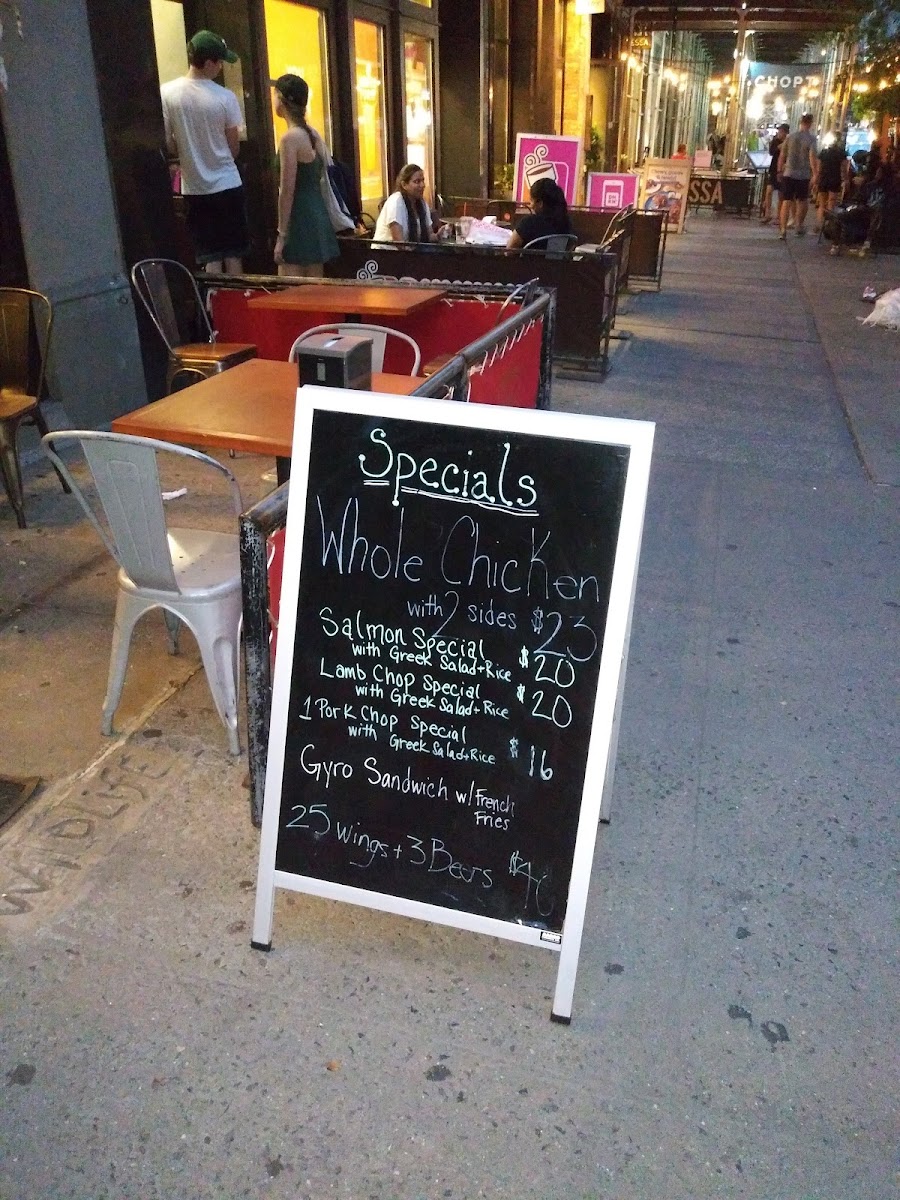 CHOPT
SSA
Specials
Whole Chicken
with 2 sides $23
Salmon Special
with Greek Salad+Rice $20
Lamb Chop Special
with Greek Salad+Rice $20
1 Pork Chop Special
with Greek Salad+Rice $16
Gyro Sandwich w/ French
Fries
25 wings + 3 Beers